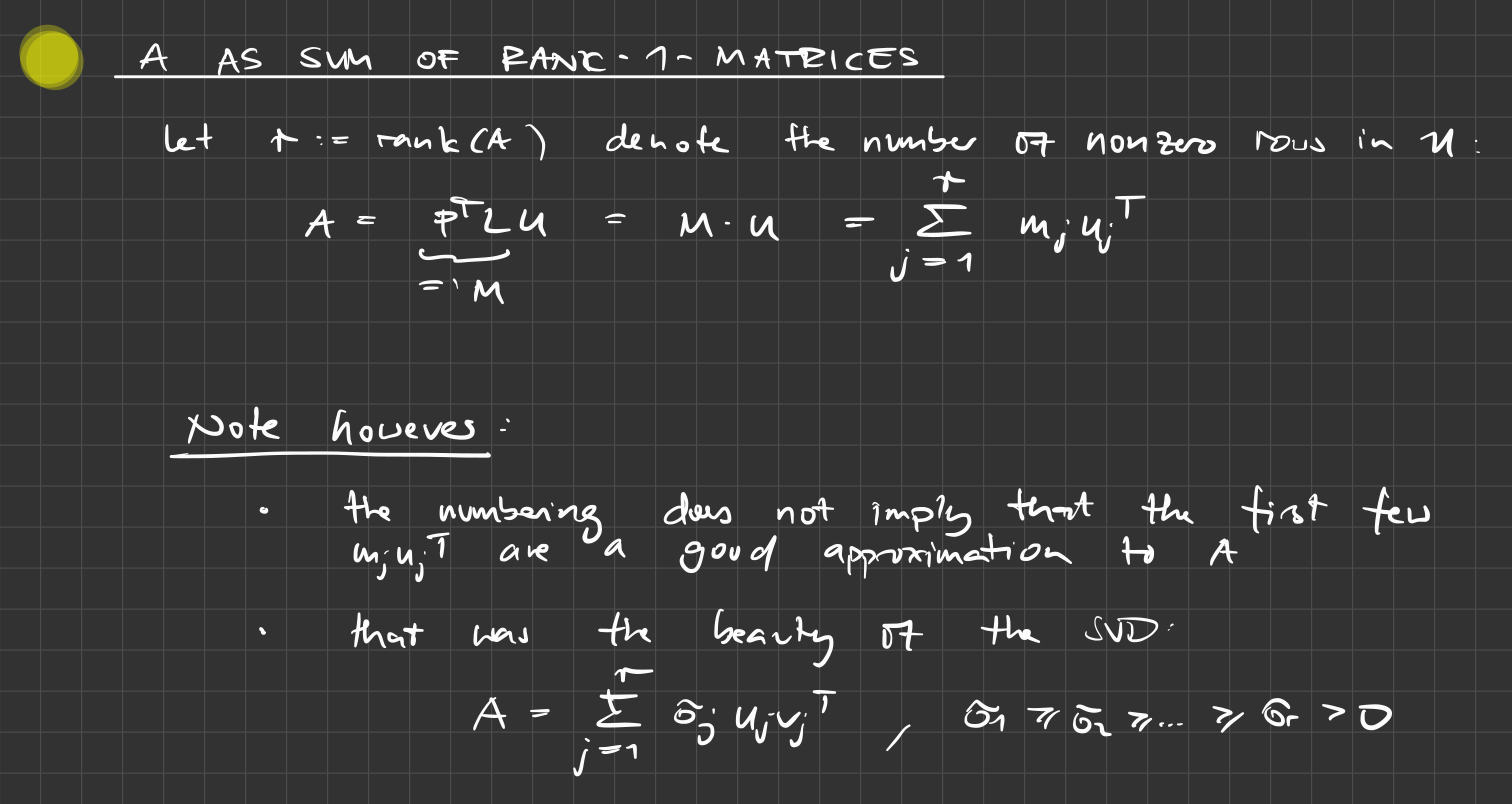 A AS SUM OF RANK-1-MATRICES
let r := rank(A) denote the number of nonzero rows in U:
A = PᵀLU = M·U = ∑_{j=1}^{r} m_j u_jᵀ
=: M
Note however:
• the numbering does not imply that the first few
m_j u_jᵀ are a good approximation to A
• that was the beauty of the SVD:
A = ∑_{j=1}^{r} σ_j u_j v_jᵀ , σ₁ ≥ σ₂ ≥ ... ≥ σ_r > 0